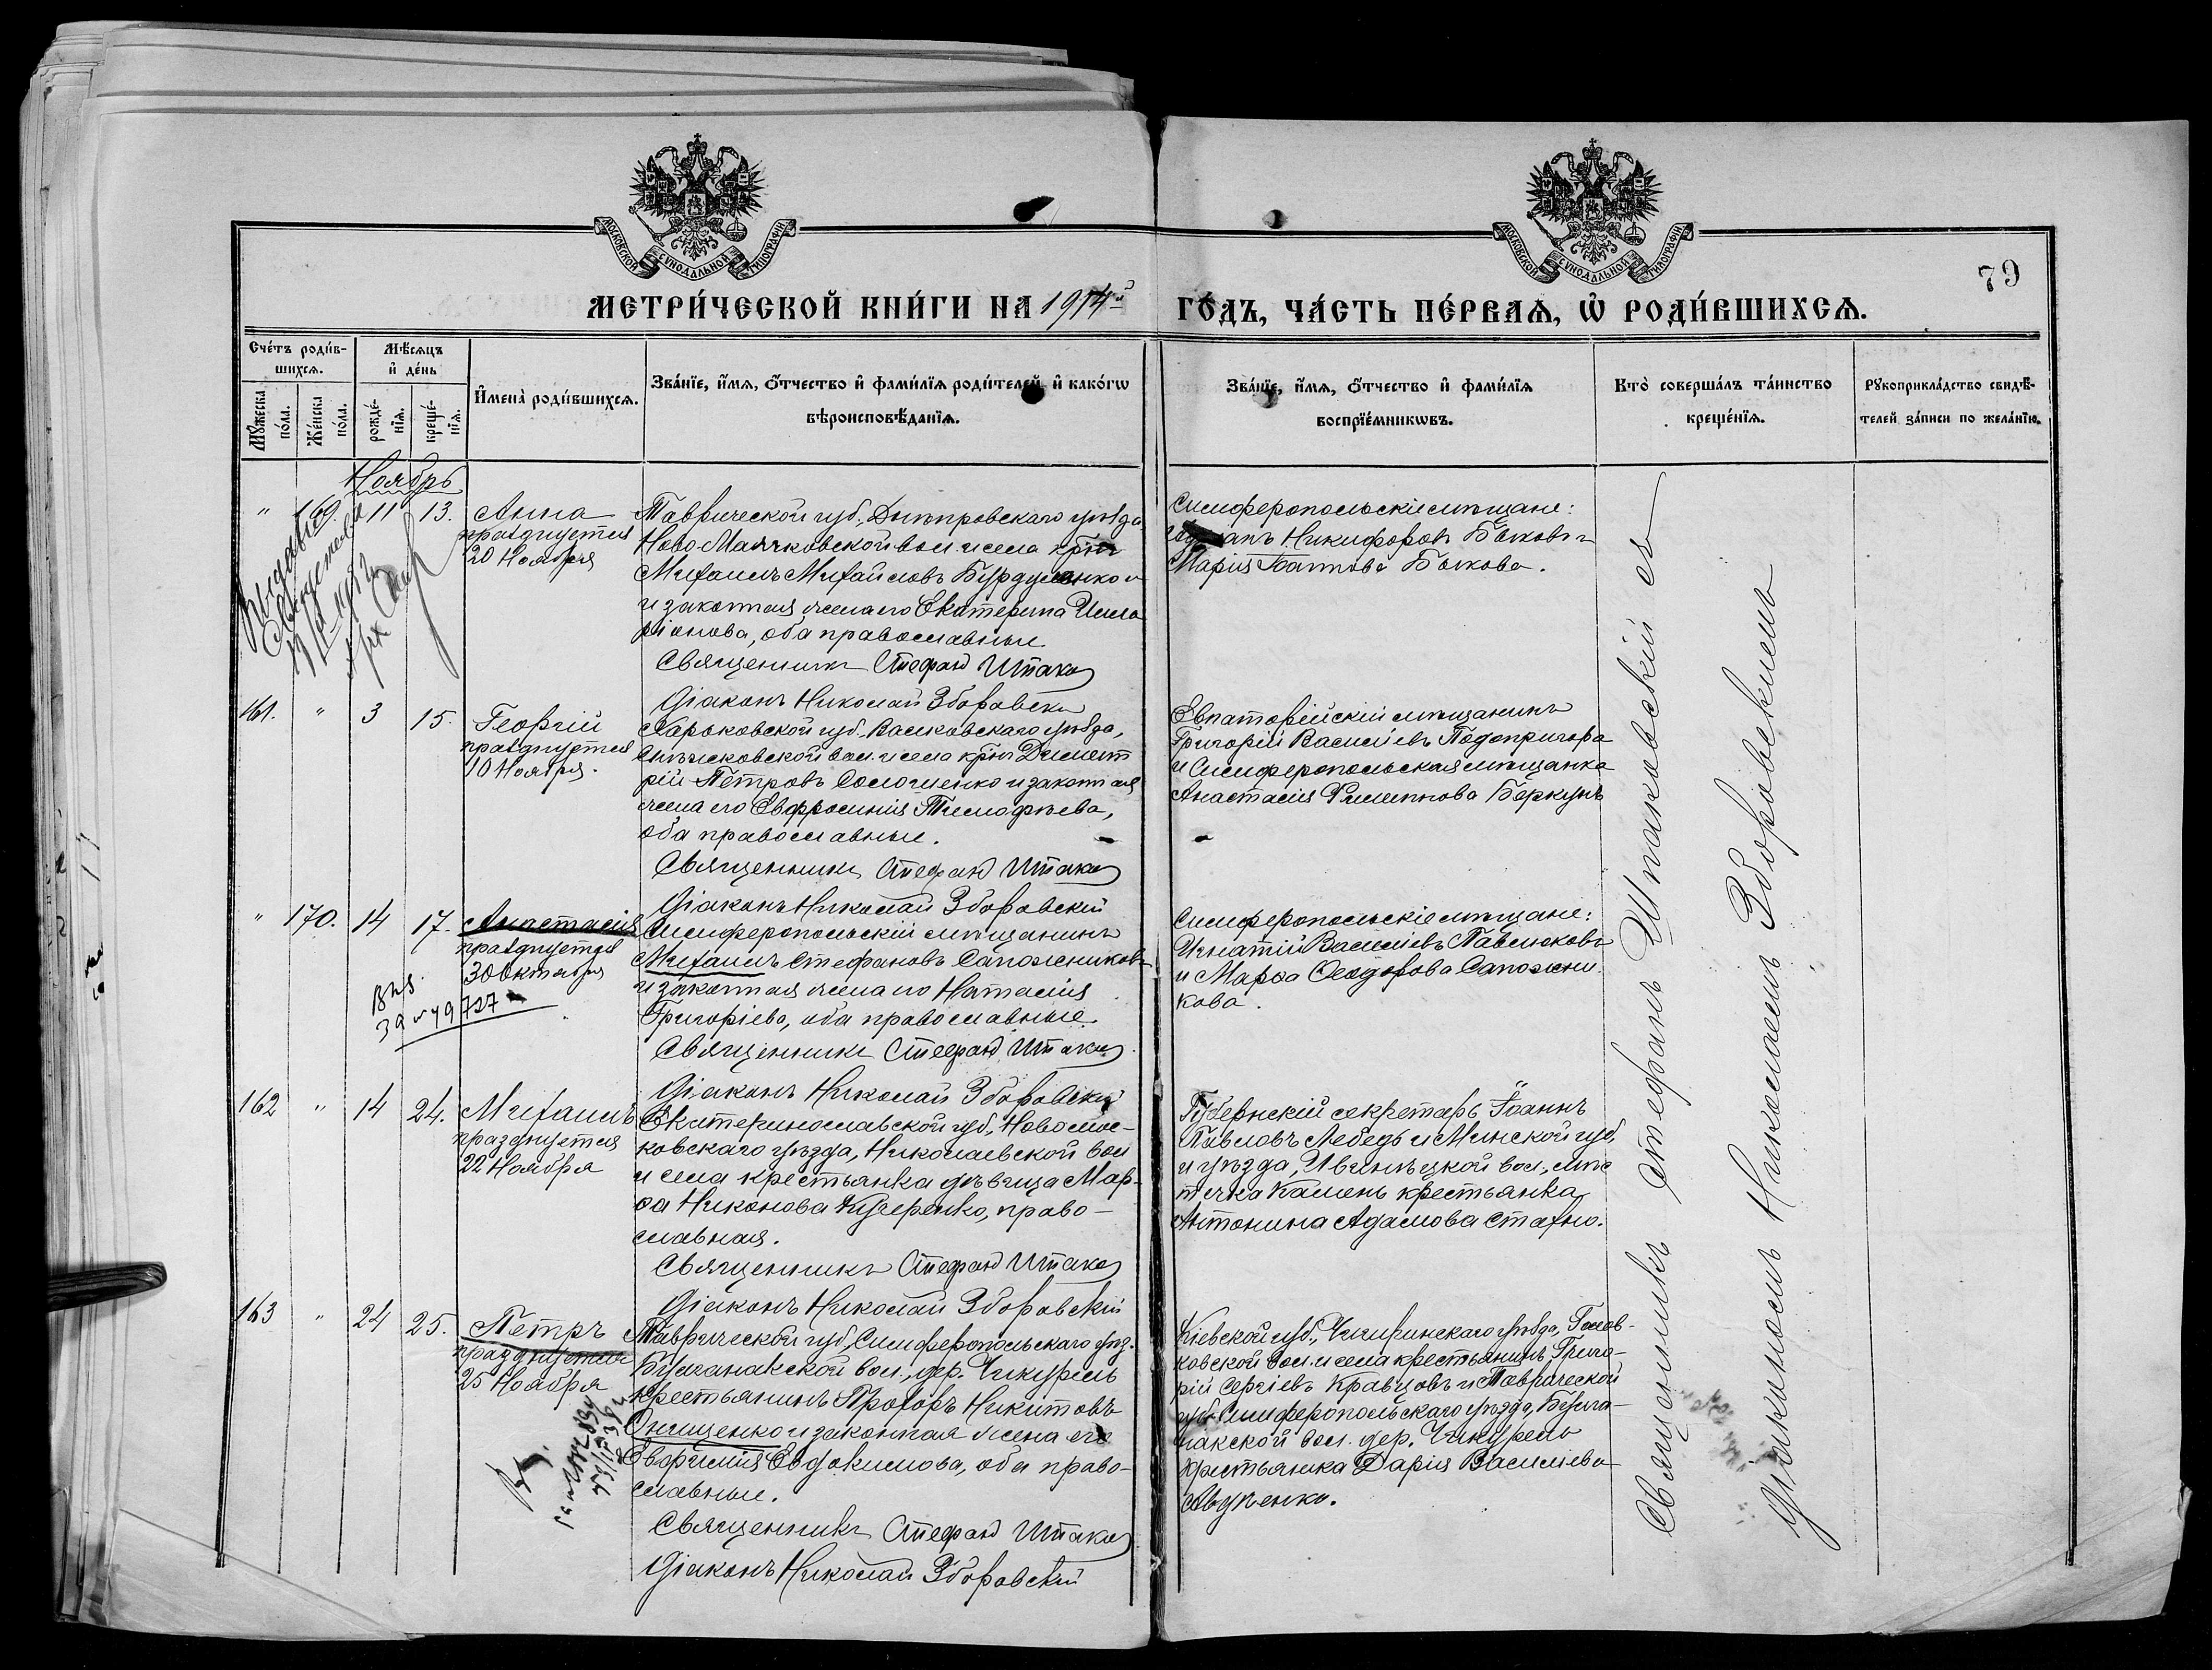 МОСКОВСКОЙ СѴНОДАЛЬНОЙ ТИПОГРАФІИ
МОСКОВСКОЙ СѴНОДАЛЬНОЙ ТИПОГРАФІИ
79
МЕТРИ́ЧЕСКОЙ КНИ́ГИ НА 1914й
ГО́ДЪ, ЧА́СТЬ ПЕ́РВАѦ, Ѡ҆ РОДИ́ВШИХСѦ.
Сче́тъ роди́в-
шихсѧ.
Мꙋ́жеска
по́ла.
Же́нска
по́ла.
Мѣ́сѧцъ
и҆ де́нь
рожде́-
нїѧ.
креще́-
нїѧ.
И҆мена̀ роди́вшихсѧ.
Зва́нїе, и҆́мѧ, ѻ҆́тчество и҆ фами́лїѧ роди́телей, и҆ како́гѡ
вѣроисповѣ́данїѧ.
Зва́нїе, и҆́мѧ, ѻ҆́тчество и҆ фами́лїѧ
воспрїе́мникѡвъ.
Кто̀ соверша́лъ та́инство
креще́нїѧ.
Рꙋкоприкла́дство свидѣ́-
телей за́писи по жела́нїю.
Ноябрь
" 169. 11 13.
Анна
празднуется
20 Ноября
Таврической губ., Днѣпровскаго уѣзда
Ново-Маячковской вол. и села кр-нъ
Михаилъ Михайловъ Бурдуленко
и законная жена его Екатерина Илла-
ріонова, оба православные.
Священникъ Стефанъ Шпако
Діаконъ Николай Зборовски
Симферопольскіе мѣщане:
Никифоровъ Быковъ и
Марія Быкова.
161. " 3 15.
Георгій
празднуется
10 Ноября.
Харьковской губ., Валковскаго уѣзда,
вол. и села кр-нъ Димит
рій Петровъ и законная
жена его Евфросинія Тимофѣева,
оба православные.
Священникъ Стефанъ Шпако
Діаконъ Николай Зборовскій
Евпаторійскій мѣщанинъ
Григорій Васильевъ Подопригора
и Симферопольская мѣщанка
Анастасія Филиппова Беркунъ
" 170. 14 17.
Анастасія
празднуется
30 Октября
39 49 727
Симферопольскій мѣщанинъ
Михаилъ Стефановъ Сапожниковъ
и законная жена его Наталія
Григоріева, оба православные.
Священникъ Стефанъ Шпако
Діаконъ Николай Зборовскій
Симферопольскіе мѣщане:
Игнатій Васильевъ Павлюковъ
и Марѳа Ѳеодорова Сапожни-
кова.
162 " 14 24.
Михаилъ
празднуется
22 Ноября
Екатеринославской губ., Новомос-
ковскаго уѣзда, Николаевской вол
и села крестьянка дѣвица Мар-
ѳа Никонова Кучеренко, право-
славная.
Священникъ Стефанъ Шпако
Діаконъ Николай Зборовскій
Губернскій секретарь Іоаннъ
Павловъ Лебедь и Минской губ.
и уѣзда, Ивенецкой вол., мѣс
течка Камень крестьянка
Антонина Адамова Стахно.
163 " 24 25.
Петръ
празднуется
25 Ноября
Таврической губ., Симферопольскаго уѣз.
Булганакской вол., дер. Чикурель
крестьянинъ Прохоръ Никитовъ
Онищенко и законная жена его
Евфимія Евдокимова, оба право-
славные.
Священникъ Стефанъ Шпако
Діаконъ Николай Зборовскій
Кіевской губ., Чигиринскаго уѣзда, Голов-
ковской вол. и села крестьянинъ Григо-
рій Сергіевъ Кравцовъ и Таврической
губ. Симферопольскаго уѣзда, Булга-
накской вол. дер. Чикурель
крестьянка Дарія Василіева
Священникъ Стефанъ Шпаковскій съ
Николаемъ Зборовскимъ